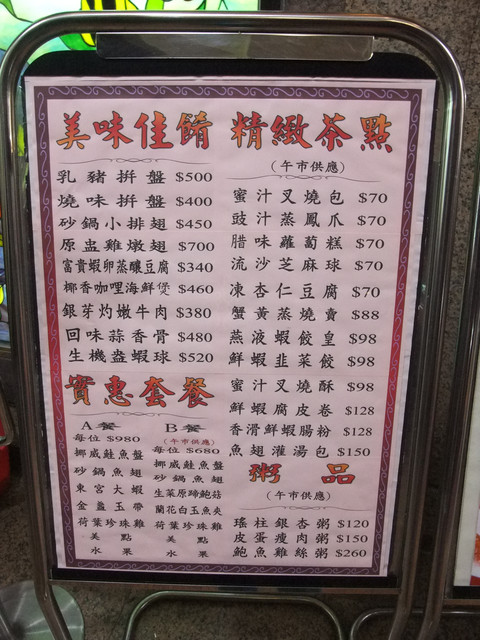 美味佳餚
乳豬拼盤 $500
燒味拼盤 $400
砂鍋小排翅 $450
原盅雞燉翅 $700
富貴蝦卵蒸釀豆腐 $340
椰香咖哩海鮮煲 $460
銀芽灼嫩牛肉 $380
回味蒜香骨 $480
生機盎蝦球 $520
實惠套餐
A餐
每位 $980
挪威鮭魚盤
砂鍋魚翅
東宮大蝦
金盞玉帶
荷葉珍珠雞
美點
水果
B餐
(午市供應)
每位 $680
挪威鮭魚盤
砂鍋魚翅
生菜原蹄鮑菇
蘭花白玉魚夾
荷葉珍珠雞
美點
水果
精緻茶點
(午市供應)
蜜汁叉燒包 $70
豉汁蒸鳳爪 $70
腊味蘿蔔糕 $70
流沙芝麻球 $70
凍杏仁豆腐 $70
蟹黃蒸燒賣 $88
燕液蝦餃皇 $98
鮮蝦韭菜餃 $98
蜜汁叉燒酥 $98
鮮蝦腐皮卷 $128
香滑鮮蝦腸粉 $128
魚翅灌湯包 $150
粥品
(午市供應)
瑤柱銀杏粥 $120
皮蛋瘦肉粥 $150
鮑魚雞絲粥 $260